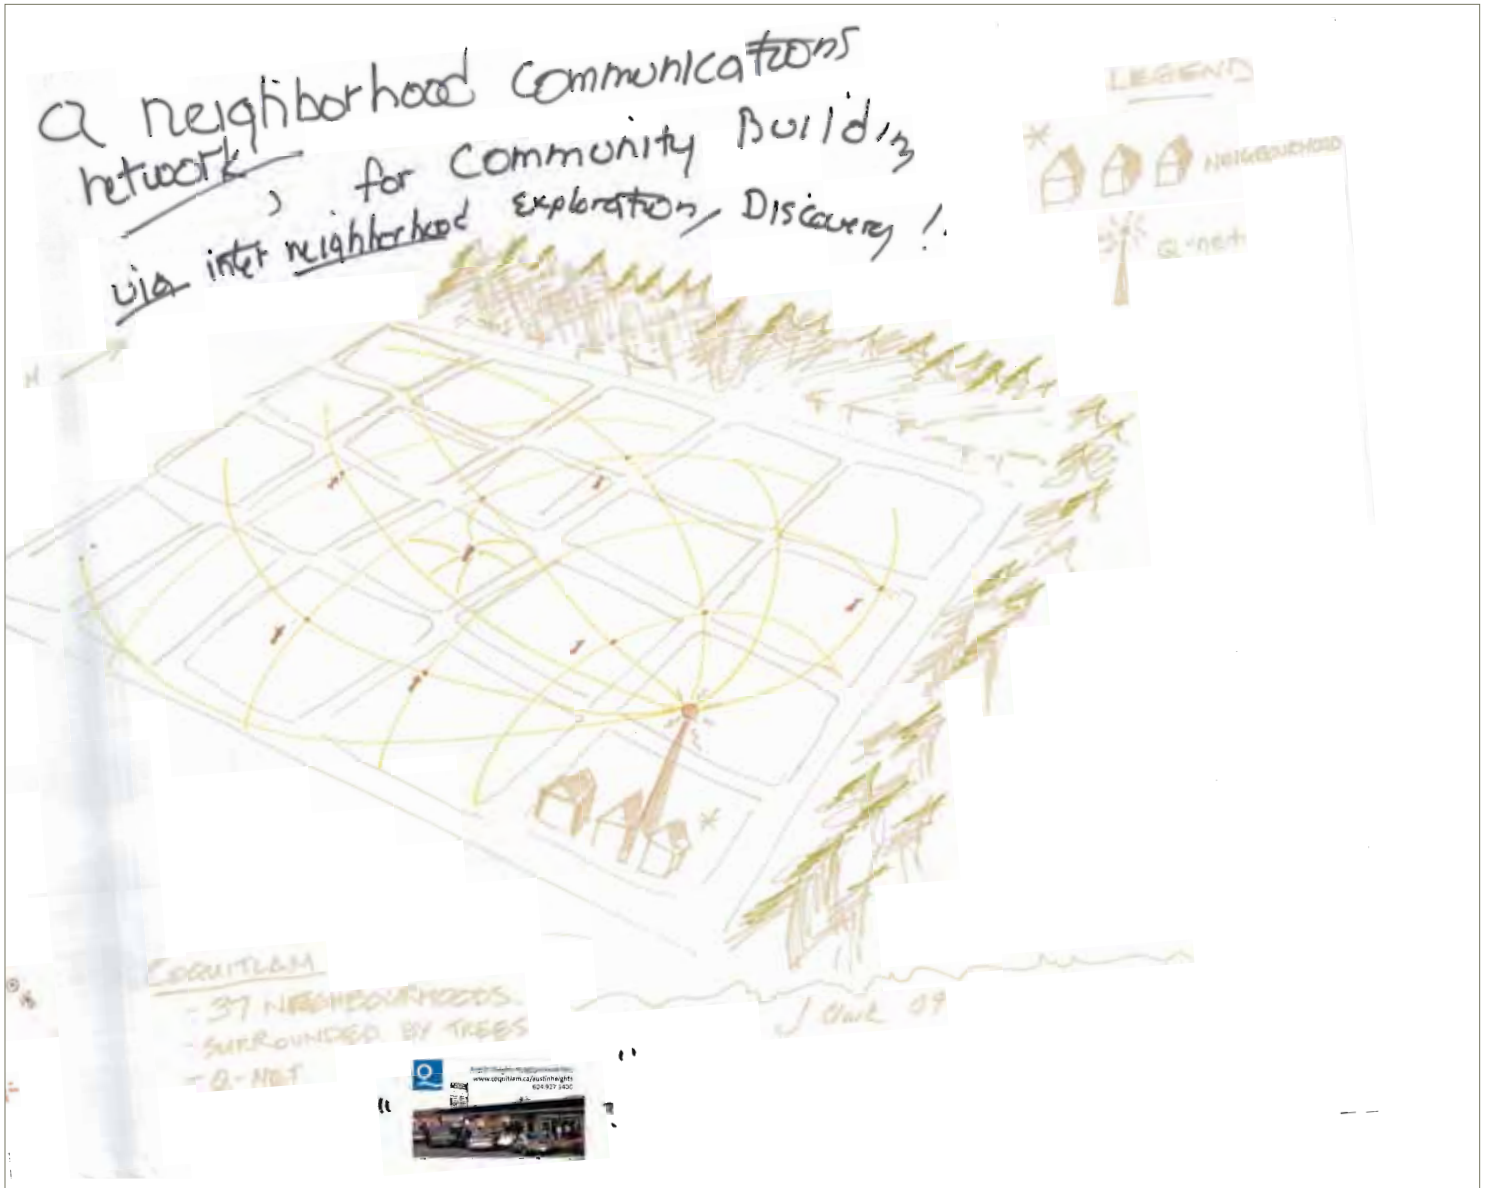 a neighborhood communications
network, for Community Building
via inter neighborhood exploration, Discovery!
LEGEND
NEIGBOURHOOD
Q-net
N
COQUITLAM
- 37 NEIGHBOURHOODS
- SURROUNDED BY TREES
- Q-NET
J Clark 09
Q
www.coquitlam.ca/austinheights
604.927.3400